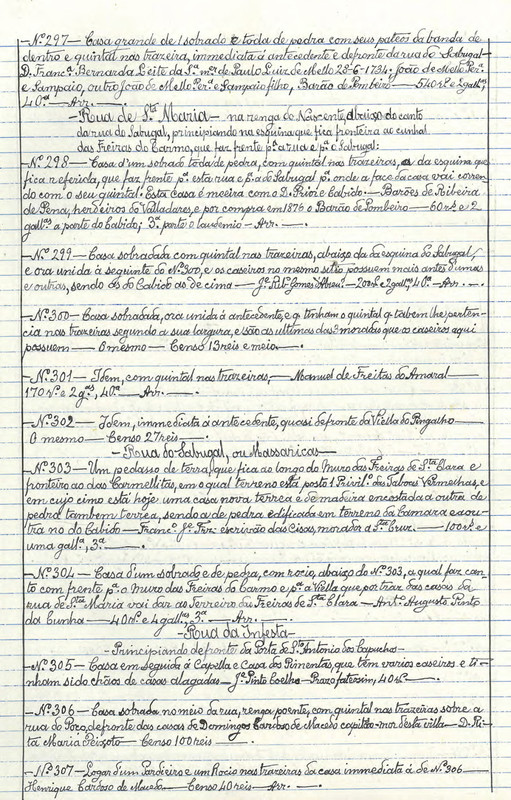 -Nº 297- Casa grande de 1 sobrado e toda de pedra com seus pateos da banda de
dentro e quintal nas trazeiras, immediata á antecedente e defronte da rua do Sabugal-
D. Francª Bernarda Leite da Sª mª de Paulo Luiz de Mello 28-6-1734. João de Mello Perª
e Sampaio, outro João de Mello Perª e Sampaio filho, Barão de Pombeiro — 540 rs e 2 gallªs,
40ª — Arr. —.
-Roua de Stª Maria- na renga do Nascente, abaixo do canto
da rua do Sabugal, principiando na esquina que fica fronteira ao cunhal
das Freiras do Carmo, que faz frente pª a rua e pª o Sabugal:
-Nº 298- Casa d'um sobrado toda de pedra, com quintal nas trazeiras, e da esquina que
fica referiola, que faz frente pª esta rua e pª a do Sabugal pª onde a face da casa vai corren-
do com o seu quintal. Esta casa é meeira com o D. Prior e Cabido — Barões de Ribeira
de Pena, herdeiros do Valladares, e por compra em 1876 o Barão de Pombeiro — 60 rs e 2
gallªs a parte do Cabido, 3ª parte o laudemio - Arr. —.
-Nº 299- Casa sobradada com quintal nas trazeiras, abaixo da da esquina do Sabugal,
e ora unida á seguinte do Nº 300, e os caseiros no mesmo sitio possuem mais antes d'umas
e outras, sendo as do Cabido as de cima — Jº Ribº Gomes Abreu - 200 rs e 2 gallªs, 40ª - Arr. —.
-Nº 300- Casa sobradada, ora unida á antecedente, e q tinham o quintal q tabem lhe perten-
cia nas trazeiras segundo a sua largura, e são as ultimas das moradas que os caseiros aqui
possuem — O mesmo — Censo 13 reis e meio —.
-Nº 301- Idem, com quintal nas trazeiras, — Manuel de Freitas do Amaral
170 rs e 2 gªs, 40ª — Arr. —.
-Nº 302- Idem, immediata á antecedente, quasi defronte da Viella do Pingalho —
O mesmo — Censo 27 reis —.
-Roua do Sabugal, ou Massaricas-
-Nº 303- Um pedasso de terra, que fica ao longo do Muro das Freiras de Stª Clara e
fronteiro ao das Carmellitas, em o qual terreno está posto 1 Privilº das Taboas Vermelhas, e
em cujo cimo está hoje uma casa nova terrea e de madeira encostada a outra de
pedra tambem terrea, sendo a de pedra edificada em terreno da Camara e a ou-
tra no do Cabido — Francº Jº Frz escrivão das Cisas, morador a Stª Cruz. — 100 rs e
uma gallª, 3ª —.
-Nº 304- Casa d'um sobrado e de pedra, com rocio, abaixo do Nº 303, a qual faz can-
to com frente pª o Muro das Freiras do Carmo e pª a Viella que por traz das casas da
rua de Stª Maria vai dar ao Terreiro das Freiras de Stª Clara — Antº Augusto Pinto
da Cunha — 40 rs e 4 gallªs, 3ª — Arr. —.
-Roua da Infesta-
-Principiando defronte da Porta de Stº Antonio dos Capuchos-
-Nº 305- Casa em seguida á Capella e Casa dos Pimentas, que tem varios caseiros e ti-
nham sido chãos de casas alagadas — Jº Pinto Coelho - Prazo fateosim, 40 rs —.
-Nº 306- Casa sobrada, no meio da rua, renga poente, com quintal nas trazeiras sobre a
rua do Poço, defronte das casas de Domingos Cardoso de Macedo capitão-mor desta villa — D. Ri-
ta Maria Peixoto — Censo 100 reis —.
-Nº 307- Logar d'um Pardieiro e um Rocio nas trazeiras da casa immediata á de Nº 306
Henrique Cardoso de Macedo — Censo 40 reis — Arr —.